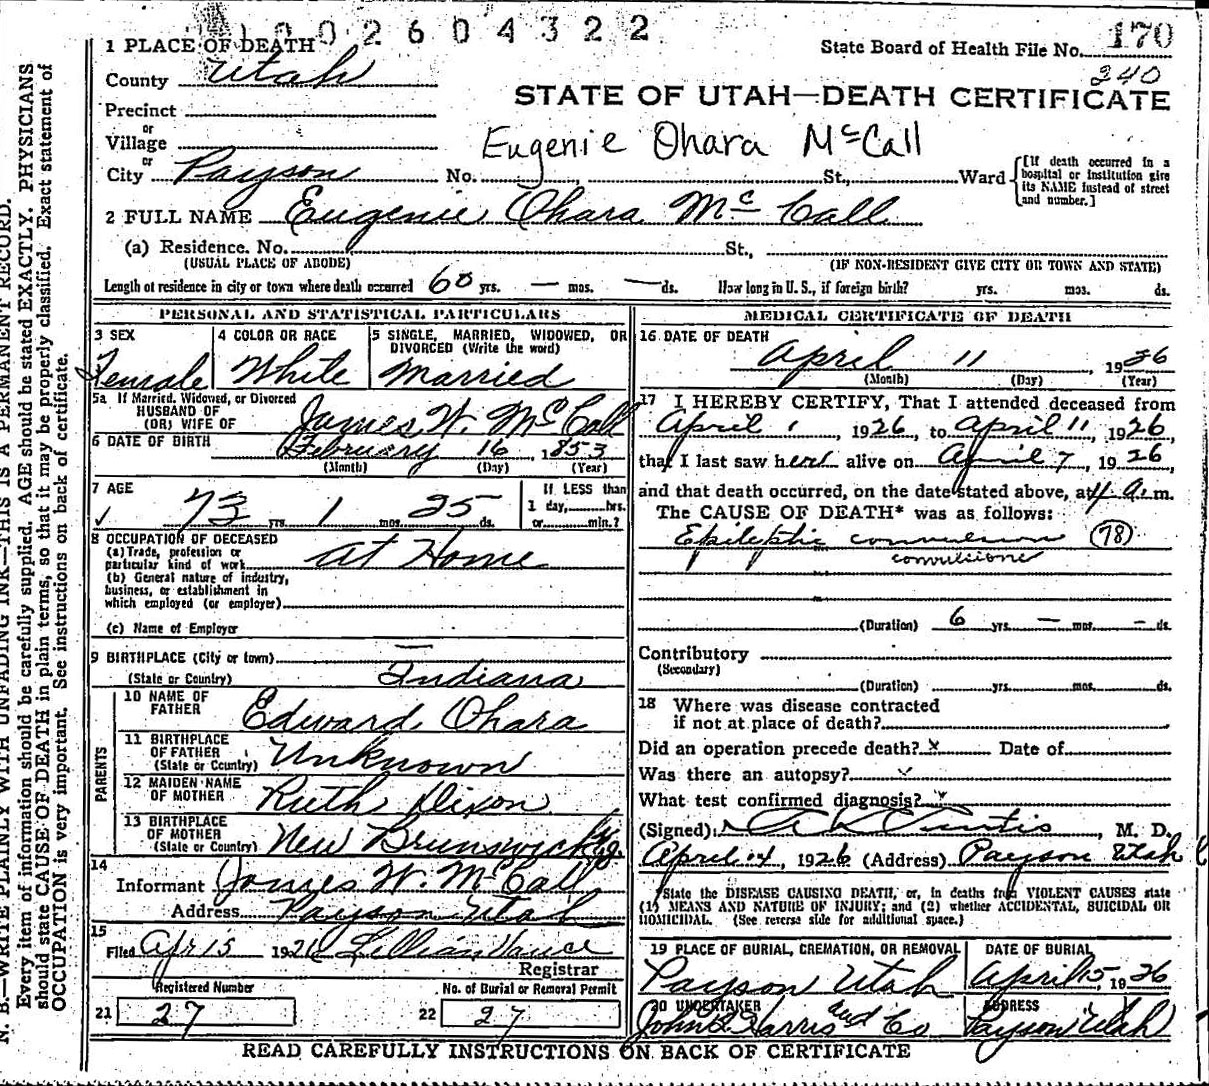 1002604322
1 PLACE OF DEATH State Board of Health File No. 170
County Utah 240
STATE OF UTAH—DEATH CERTIFICATE
Precinct
or
Village
Eugenie Ohara McCall
or
City Payson No. , St., Ward [If death occurred in a hospital or institution give its NAME instead of street and number.]
2 FULL NAME Eugenie Ohara McCall
(a) Residence. No. St.,
(USUAL PLACE OF ABODE) (IF NON-RESIDENT GIVE CITY OR TOWN AND STATE)
Length of residence in city or town where death occurred 60 yrs. — mos. — ds. How long in U. S., if foreign birth? yrs. mos. ds.
PERSONAL AND STATISTICAL PARTICULARS
3 SEX
Female
4 COLOR OR RACE
White
5 SINGLE, MARRIED, WIDOWED, OR
DIVORCED (Write the word)
Married
5a If Married, Widowed, or Divorced
HUSBAND OF
(OR) WIFE OF James W. McCall
6 DATE OF BIRTH February 16, 1853
(Month) (Day) (Year)
7 AGE
73 yrs. 1 mos. 25 ds.
If LESS than
1 day, hrs.
or min.?
8 OCCUPATION OF DECEASED
(a) Trade, profession or
particular kind of work at Home
(b) General nature of industry,
business, or establishment in
which employed (or employer)
(c) Name of Employer
9 BIRTHPLACE (City or town) —
(State or Country) Indiana
PARENTS
10 NAME OF
FATHER Edward Ohara
11 BIRTHPLACE
OF FATHER
(State or Country) Unknown
12 MAIDEN NAME
OF MOTHER Ruth Dixon
13 BIRTHPLACE
OF MOTHER
(State or Country) New Brunswick
14
Informant James W. McCall
Address Payson Utah
15
Filed Apr 15 1926 Lillian Vance
Registrar
Registered Number
21 27
No. of Burial or Removal Permit
22 27
MEDICAL CERTIFICATE OF DEATH
16 DATE OF DEATH
April 11, 1926
(Month) (Day) (Year)
17 I HEREBY CERTIFY, That I attended deceased from
April 1, 1926, to April 11, 1926,
that I last saw her alive on April 7, 1926,
and that death occurred, on the date stated above, at 4 a. m.
The CAUSE OF DEATH* was as follows:
Epileptic convulsion (78)
convulsions
(Duration) 6 yrs. — mos. — ds.
Contributory
(Secondary)
(Duration) yrs. mos. ds.
18 Where was disease contracted
if not at place of death?
Did an operation precede death? x Date of
Was there an autopsy?
What test confirmed diagnosis?
(Signed) Curtis, M. D.
April 14, 1926 (Address) Payson Utah
*State the DISEASE CAUSING DEATH, or, in deaths from VIOLENT CAUSES state
(1) MEANS AND NATURE OF INJURY; and (2) whether ACCIDENTAL, SUICIDAL OR
HOMICIDAL. (See reverse side for additional space.)
19 PLACE OF BURIAL, CREMATION, OR REMOVAL
Payson Utah
DATE OF BURIAL
April 15, 1926
20 UNDERTAKER
Harris and Co
ADDRESS
Payson Utah
READ CAREFULLY INSTRUCTIONS ON BACK OF CERTIFICATE
N. B.—WRITE PLAINLY WITH UNFADING INK—THIS IS A PERMANENT RECORD.
Every item of information should be carefully supplied. AGE should be stated EXACTLY. PHYSICIANS
should state CAUSE OF DEATH in plain terms, so that it may be properly classified. Exact statement of
OCCUPATION is very important. See instructions on back of certificate.